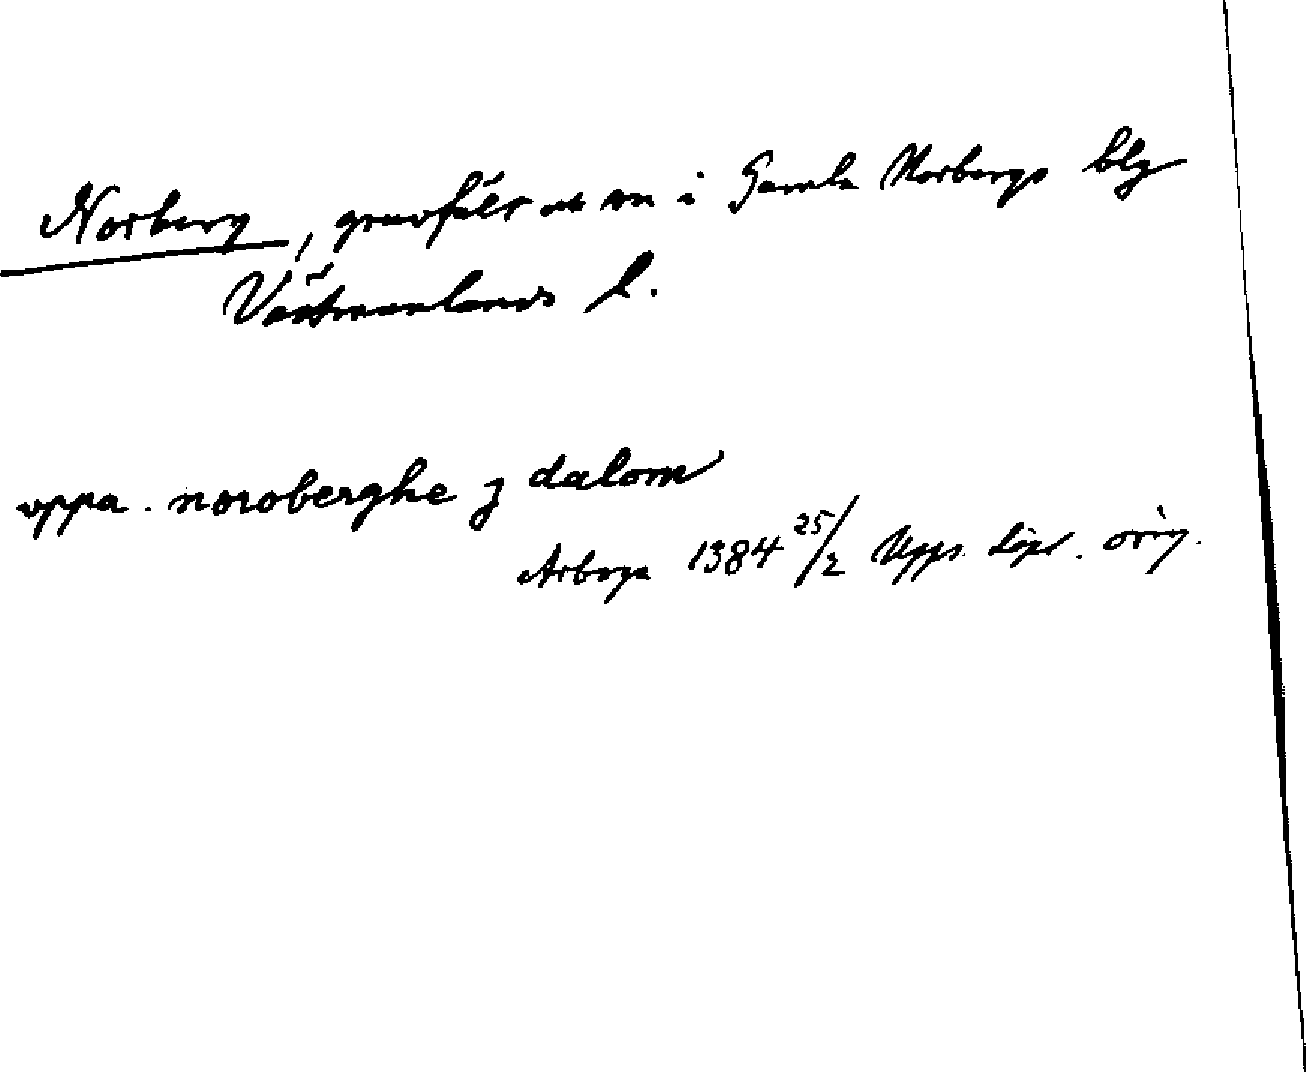 Norberg, gruvfält och sn i Gamla Norbergs blg
Västmanlands l.
vppa. noroberghe j dalom
Arboga 1384 25/2 Upps. dipl. orig.